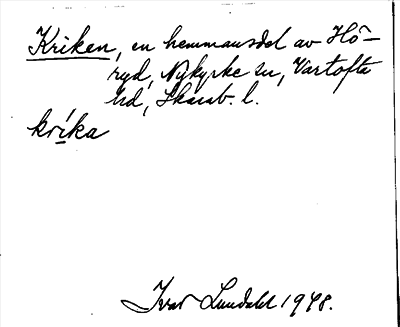 Kriken, en hemmansdel av Hö-
ryd, Nykyrke sn, Vartofta
hd, Skarab. l.
kríka
Ivar Lundahl 1948.